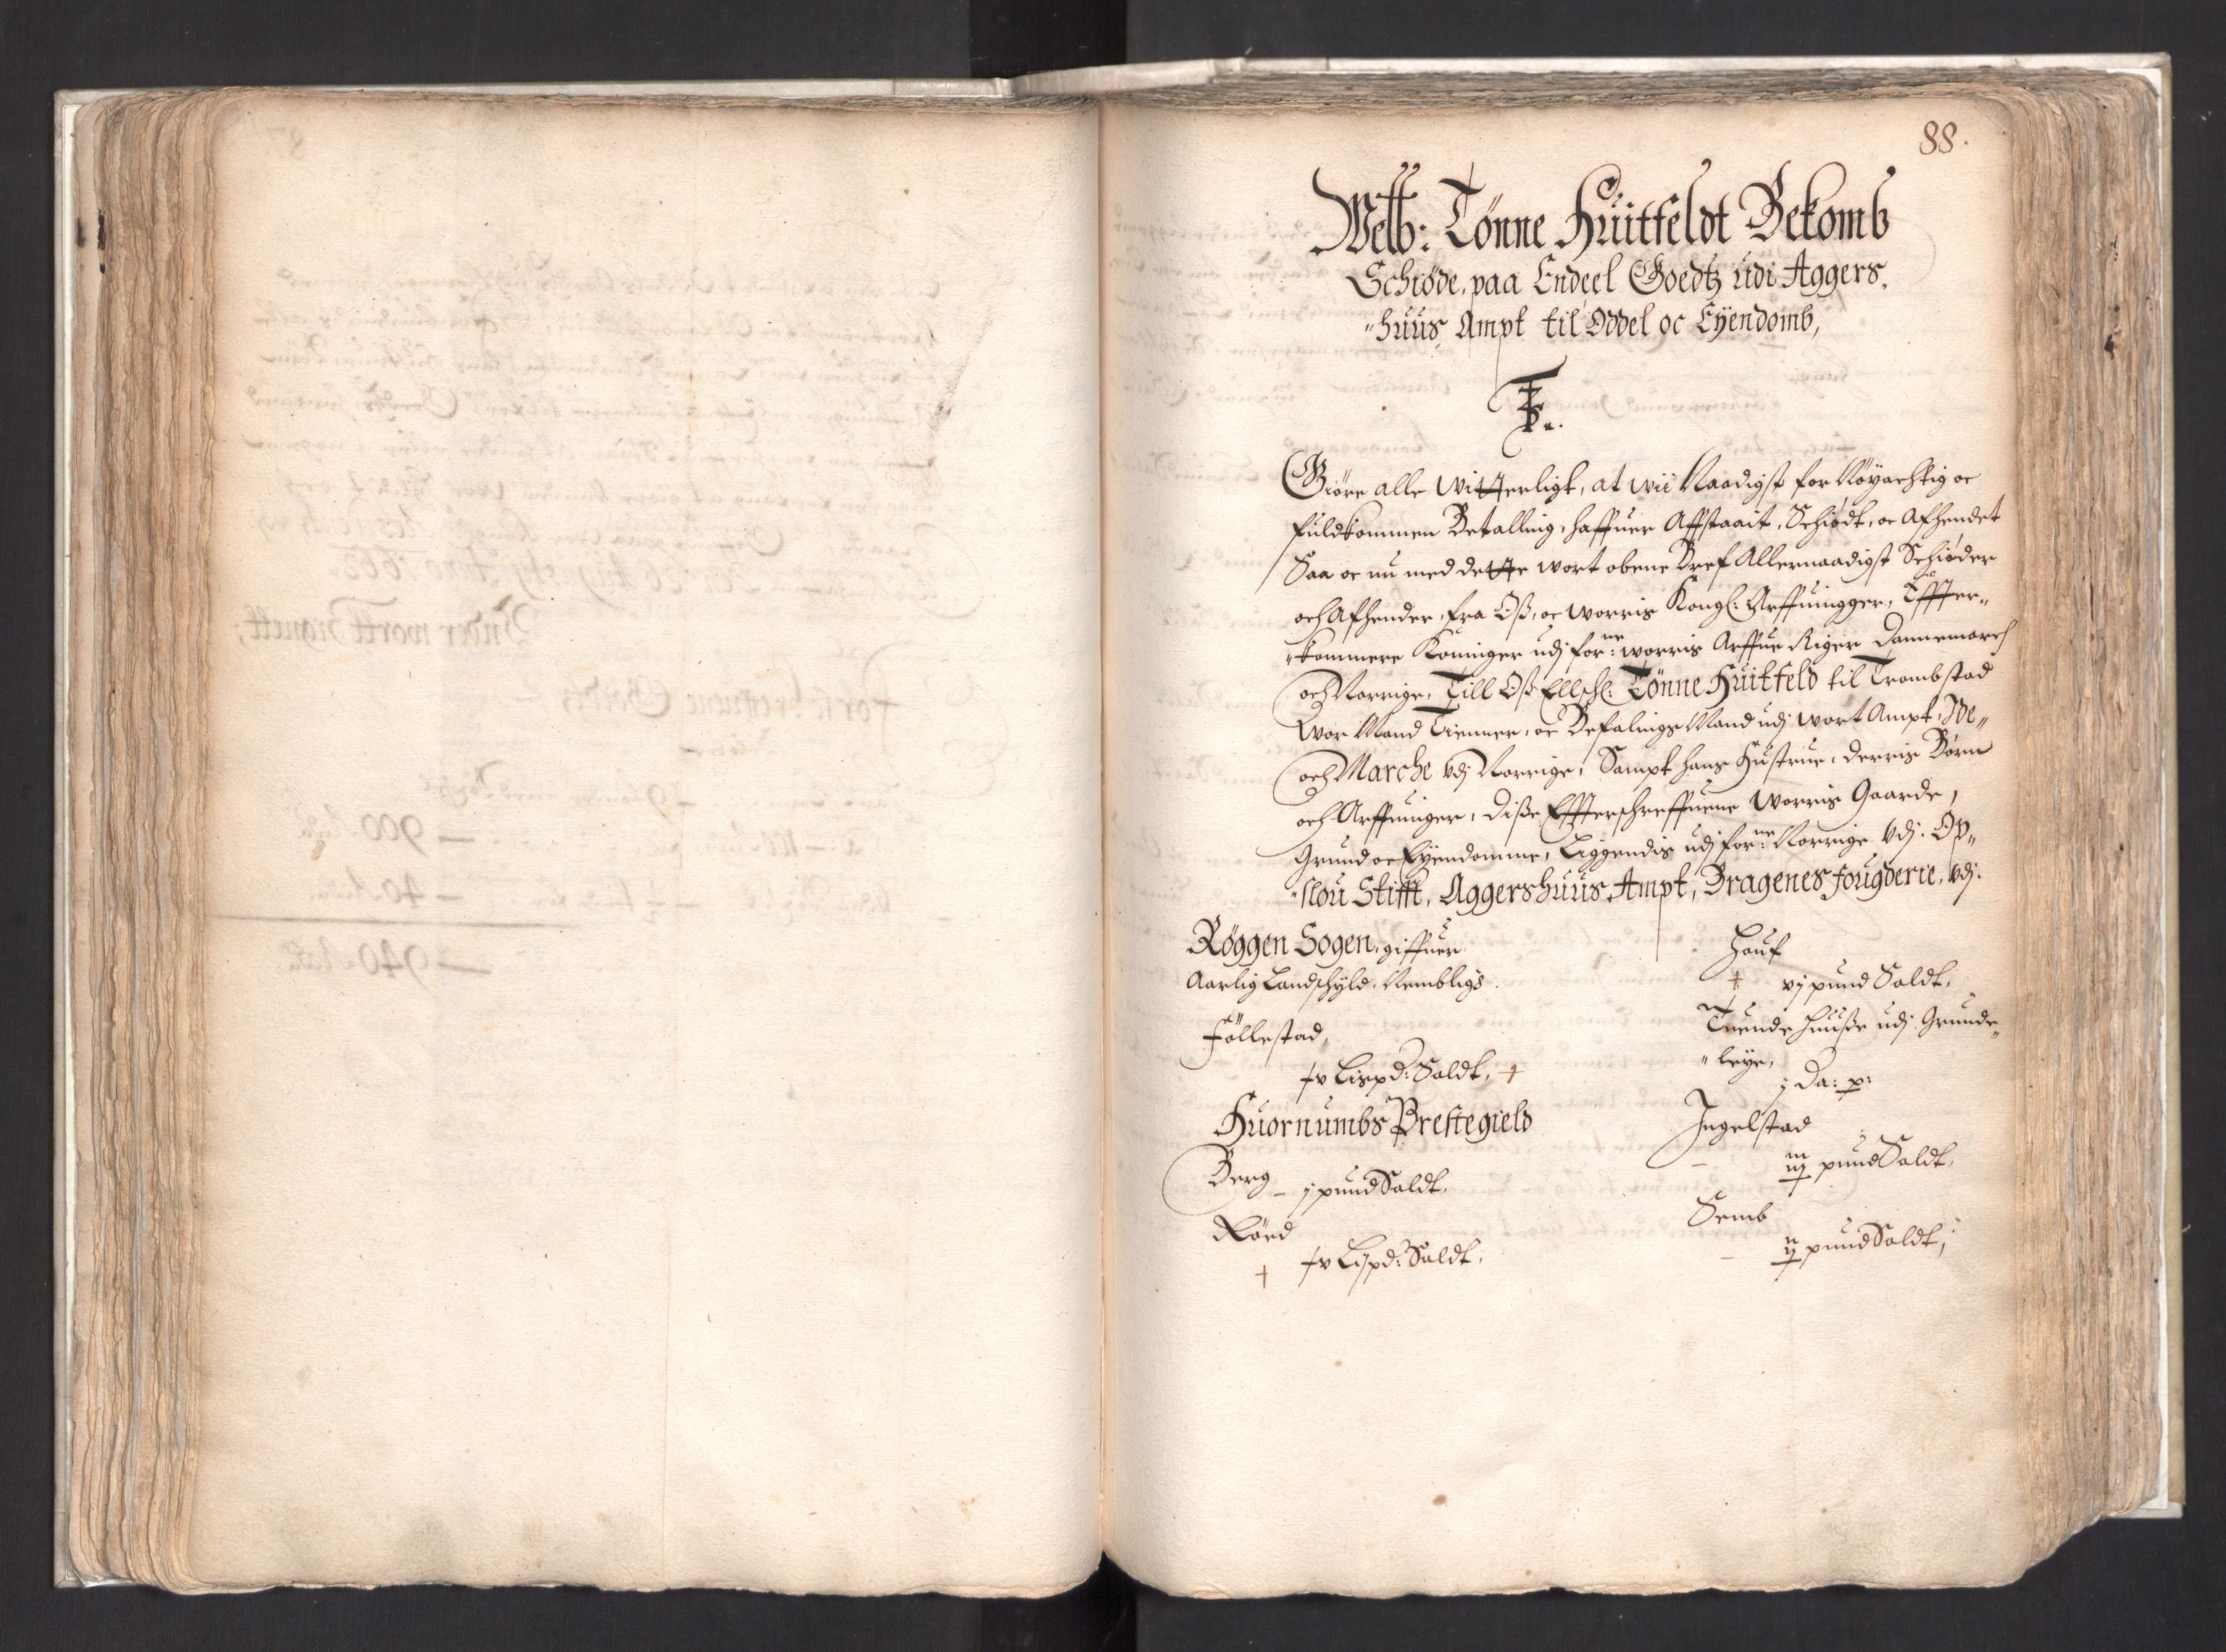 88.
Welb: Tønne Huitfeldt Bekomb
Schiøde, paa Endeel Goedtz udi Aggers,
"huus, Ampt til Oddel oc Eyendomb,
Giöre alle witterligt, at wii Naadigst for Nöyachtig oc
fuldkommen Betalling, haffuer Affstaait, Schiødt, oc Afhendet
Saa oc nu med dette wort obene Bref Allernaadigst Schiøder
och Afhender, fra Oß, oc worris Kongl: Arffuingger, Effter"
"kommere Konninger udj for:ne worris Arffue Riger Dannemarch
och Norrige, Till Oß Elschl: Tönne Huitfeld til Trombstad
Wor Mand Tienner, oc Befalings Mand udj wort Ampt,
och Marche Vdj Norrige, Sampt hans Hustrue, derris Börn
och Arffuinger, diße Effterschreffuene Worris Gaarde,
Grund oc Eyendomme, Liggendis udj for:ne Norrige Vdj. Op"
"slou Stifft, Aggershuus Ampt, Bragenes fougderie, Vdj.
Røggen Sogen, giffuer
Aarlig Landschyld, Nembligs.
Föllestad,
jv Lispd: Saldt,
Huornumbs Prestegield
Berg j pund Saldt,
Röed
jv Lispd: Saldt,
Houf
vj pund Saldt,
Tuende Huuße udj Grunde"
"leye,
j Da: p:
Ingelstad
iij pund Saldt,
Semb
ij pund Saldt,